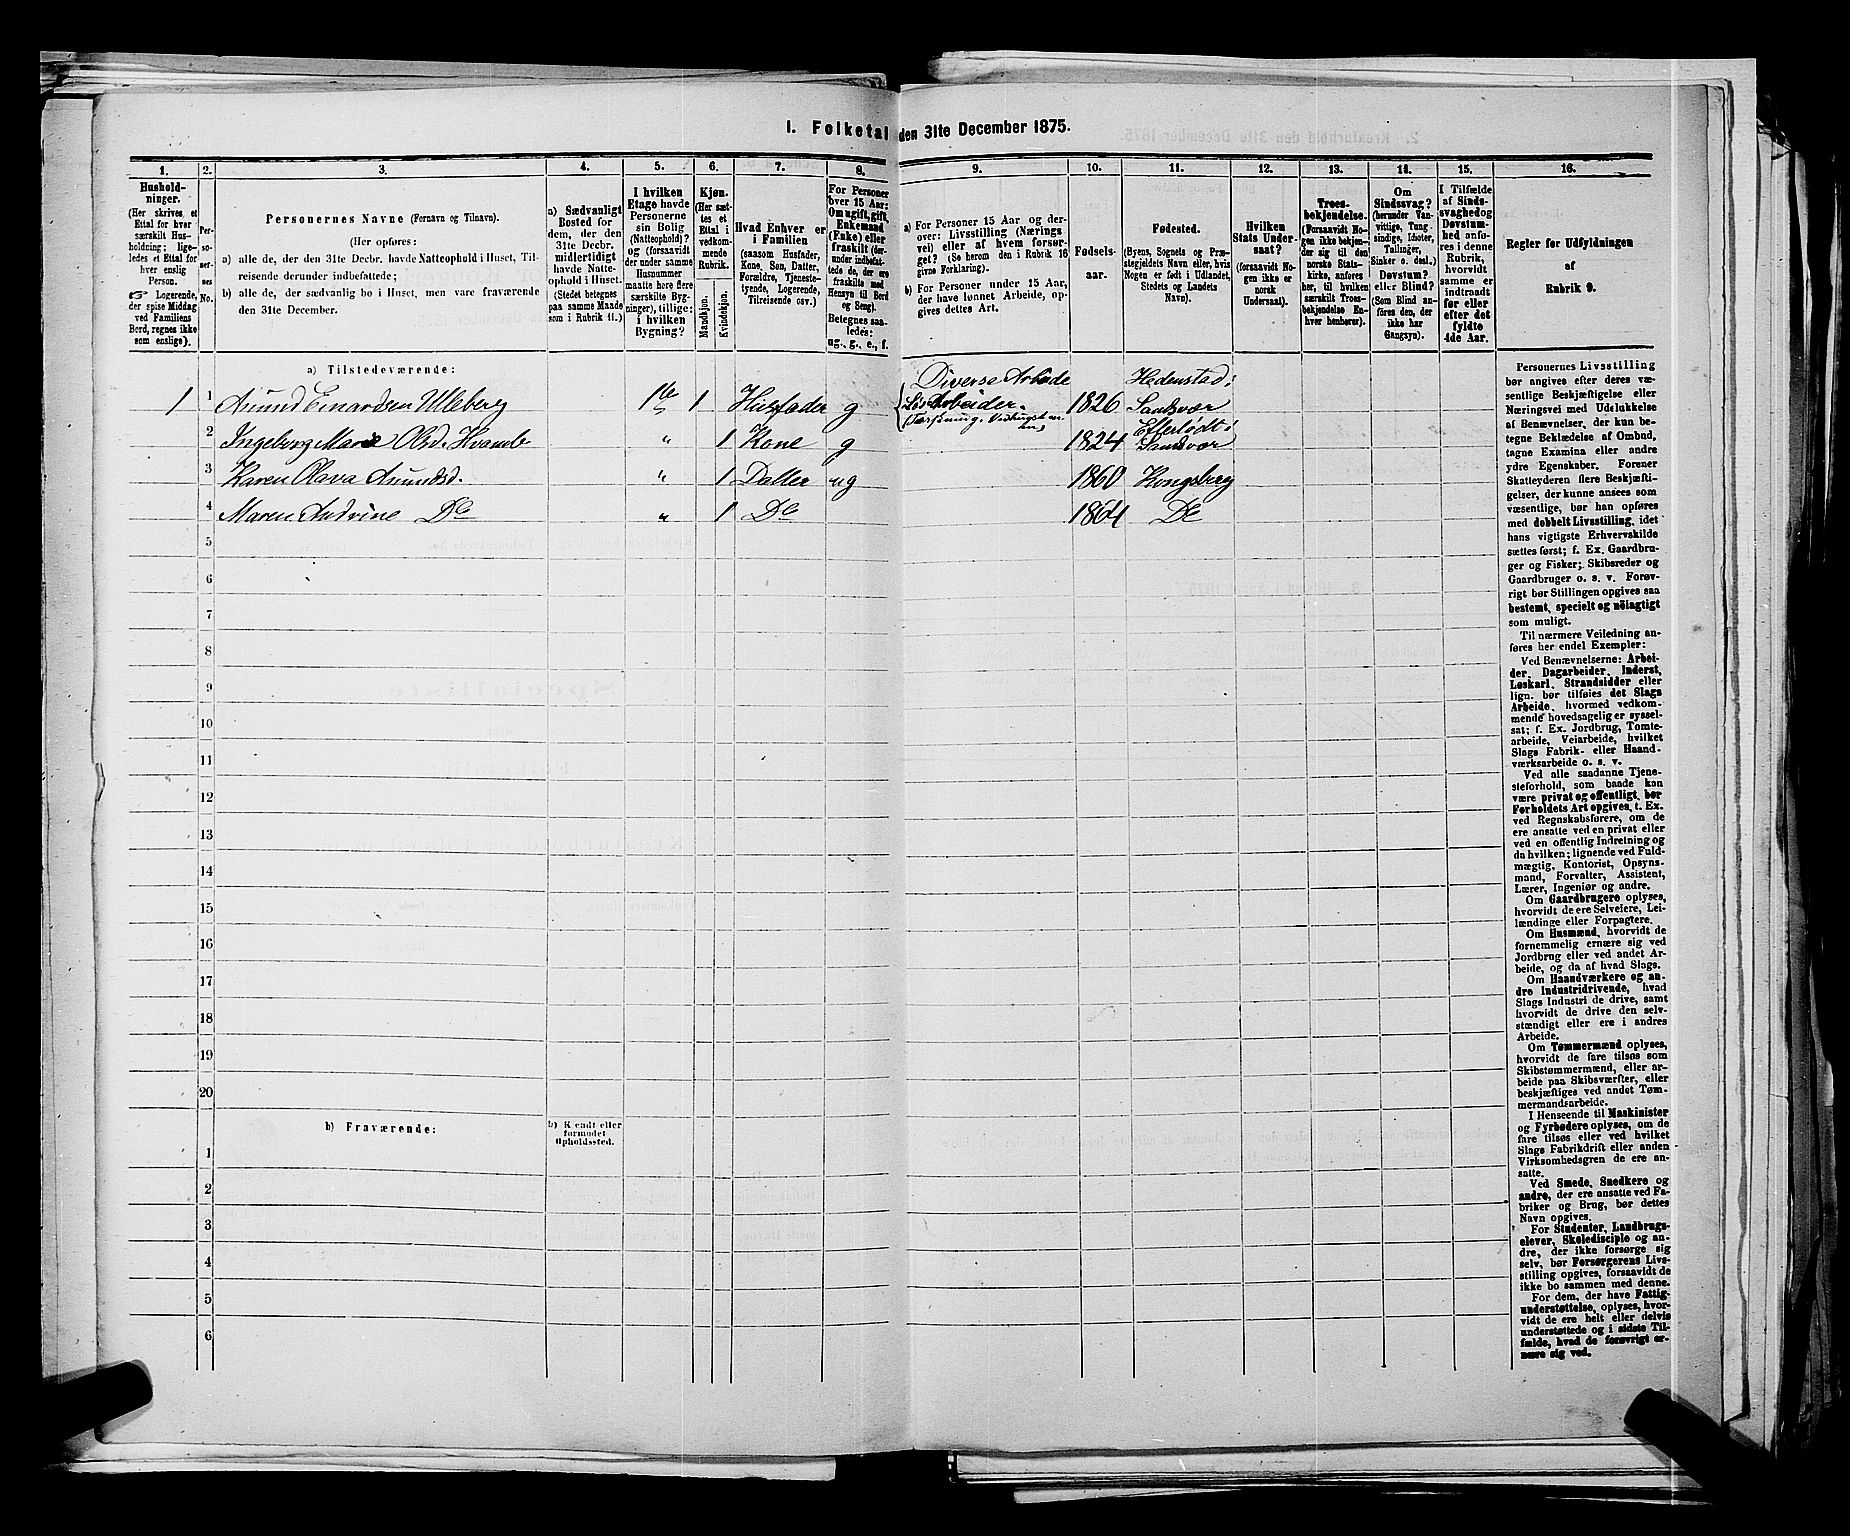 I. Folketal den 31te December 1875.
1.
Hushold-
ninger.
(Her skrives et
Ettal for hver
særskilt Hus-
holdning; lige-
ledes et Ettal for
hver enslig
Person.
☞ Logerende,
der spise Middag
ved Familiens
Bord, regnes ikke
som enslige).
2.
Per-
so-
ner-
nes
No.
3.
Personernes Navne (Fornavn og Tilnavn).
(Her opføres:
a) alle de, der den 31te Decbr. havde Natteophold i Huset, Til-
reisende derunder indbefattede;
b) alle de, der sædvanlig bo i Huset, men vare fraværende
den 31te December.
4.
a) Sædvanligt
Bosted for
dem, der den
31te Decbr.
midlertidigt
havde Natte-
ophold i Huset.
(Stedet betegnes
paa samme Maade
som i Rubrik 11.)
5.
I hvilken
Etage havde
Personerne
sin Bolig
(Natteophold)?
og (forsaavidt
der under samme
Husnummer
maatte høre flere
særskilte Byg-
ninger), tillige:
i hvilken
Bygning?
6.
Kjøn.
(Her sæt-
tes et
Ettal i
vedkom-
mende
Rubrik.
Mandkjøn.
Kvindekjøn.
7.
Hvad Enhver er
i Familien
(saasom Husfader,
Kone, Søn, Datter,
Forældre, Tjeneste-
tyende, Logerende,
Tilreisende osv.)
8.
For Personer
over 15 Aar:
Om ugift, gift,
Enkemand
(Enke) eller
fraskilt (der-
under indbefat-
tede de, der ere
fraskilte med
Hensyn til Bord
og Seng).
Betegnes saa-
ledes:
ug., g., e., f.
9.
a) For Personer 15 Aar og der-
over: Livsstilling (Nærings
vei) eller af hvem forsør-
get? (Se herom den i Rubrik 16
givne Forklaring).
b) For Personer under 15 Aar,
der have lønnet Arbeide, op-
gives dettes Art.
10.
Fødsels-
aar.
11.
Fødested.
(Byens, Sognets og Præ-
stegjeldets Navn eller, hvis
Nogen er født i Udlandet,
Stedets og Landets
Navn).
12.
Hvilken
Stats Under-
saat?
(forsaavidt No-
gen ikke er
norsk
Undersaat.
13.
Troes-
bekjendelse.
(Forsaavidt No-
gen ikke bekjen-
der sig til den
norske Stats-
kirke, anføres
her, til hvilken
særskilt Troes-
bekjendelse En-
hver henhører).
14.
Om
Sindssvag?
(herunder Van-
vittige, Tung-
sindige, Idioter,
Tullinger,
Sinker o. desl.)
Døvstum?
eller Blind?
(Som Blind an-
føres den, der
ikke har
Gangsyn).
15.
I Tilfælde
af Sinds-
svaghed og
Døvstum-
hed anfø-
res i denne
Rubrik,
hvorvidt
samme er
indtraadt
før eller
efter det
fyldte
4de Aar.
16.
Regler for Udfyldningen
af
Rubrik 9.
a) Tilstedeværende:
Diverse Arbeide Hedenstad i
1 1 Amund Einardsen Ulleberg 1te 1 Husfader g Løsarbeider 1826 Sandsvær
Eftelødt i
2 Ingeborg Marie Olsd. Hvamb „ 1 Kone g 1824 Sandsvær
3 Karen Olava Amundsd. „ 1 Datter ug 1860 Kongsberg
4 Maren Andrine Do „ 1 Do 1864 Do
5
6
7
8
9
10
11
12
13
14
15
16
17
18
19
20
b) Fraværende:
b) Kjendt eller
formodet
Opholdssted.
1
2
3
4
5
6
Personernes Livsstilling
bør angives efter deres væ-
sentlige Beskjæftigelse eller
Næringsvei med Udelukkelse
af Benævnelser, der kun be-
tegne Beklædelse af Ombud,
tagne Examina eller andre
ydre Egenskaber. Forener
Skatteyderen flere Beskjæfti-
gelser, der kunne ansees som
væsentlige, bør han opføres
med dobbelt Livsstilling, idet
hans vigtigste Erhvervskilde
sættes først; f. Ex. Gaardbru-
ger og Fisker; Skibsreder og
Gaardbruger o. s. v. Forøv-
rigt bør Stillingen opgives saa
bestemt, specielt og nöiagtigt
som muligt.
Til nærmere Veiledning an-
føres her endel Exempler:
Ved Benævnelserne: Arbei-
der, Dagarbeider, Inderst,
Løskarl, Strandsidder eller
lign. bør tilføies det Slags
Arbeide, hvormed vedkom-
mende hovedsagelig er syssel-
sat; f. Ex. Jordbrug, Tomte-
arbeide, Veiarbeide, hvilket
Slags Fabrik- eller Haand-
værksarbeide o. s. v.
Ved alle saadanne Tjene-
steforhold, som baade kan
være privat og offentligt, bør
Forholdets Art opgives, t. Ex.
ved Regnskabsførere, om de
ere ansatte ved en privat eller
ved en offentlig Indretning og
da hvilken; lignende ved Fuld-
mægtig, Kontorist, Opsyns-
mand, Forvalter, Assistent,
Lærer, Ingeniør og andre.
Om Gaardbrugere oplyses,
hvorvidt de ere Selveiere, Lei-
lændinge eller Forpagtere.
Om Husmænd, hvorvidt de
fornemmelig ernære sig ved
Jordbrug eller ved andet Ar-
beide, og da af hvad Slags.
Om Haandværkere og an-
dre Industridrivende, hvad
Slags Industri de drive, samt
hvorvidt de drive den selv-
stændigt eller ere i andres
Arbeide.
Om Tømmermænd oplyses,
hvorvidt de fare tilsøs som
Skibstømmermænd, eller ar-
beide paa Skibsværfter, eller
beskjæftiges ved andet Tøm-
mermandsarbeide.
I Henseende til Maskinister
og Fyrbødere oplyses, om de
fare tilsøs eller ved hvilket
Slags Fabrikdrift eller anden
Virksomhedsgren de ere an-
satte.
Ved Smede, Snedkere og
andre, der ere ansatte ved Fa-
briker og Brug, bør dettes
Navn opgives.
For Studenter, Landbrugs-
elever, Skoledisciple og an-
dre, der ikke forsørge sig
selv, bør Forsørgerens Livs-
stilling opgives, forsaavidt de
ikke bo sammen med denne.
For dem, der have Fattig-
understøttelse, oplyses, hvor-
vidt de ere helt eller delvis
understøttede og i sidste Til-
fælde, hvad de forøvrigt er-
nære sig ved.